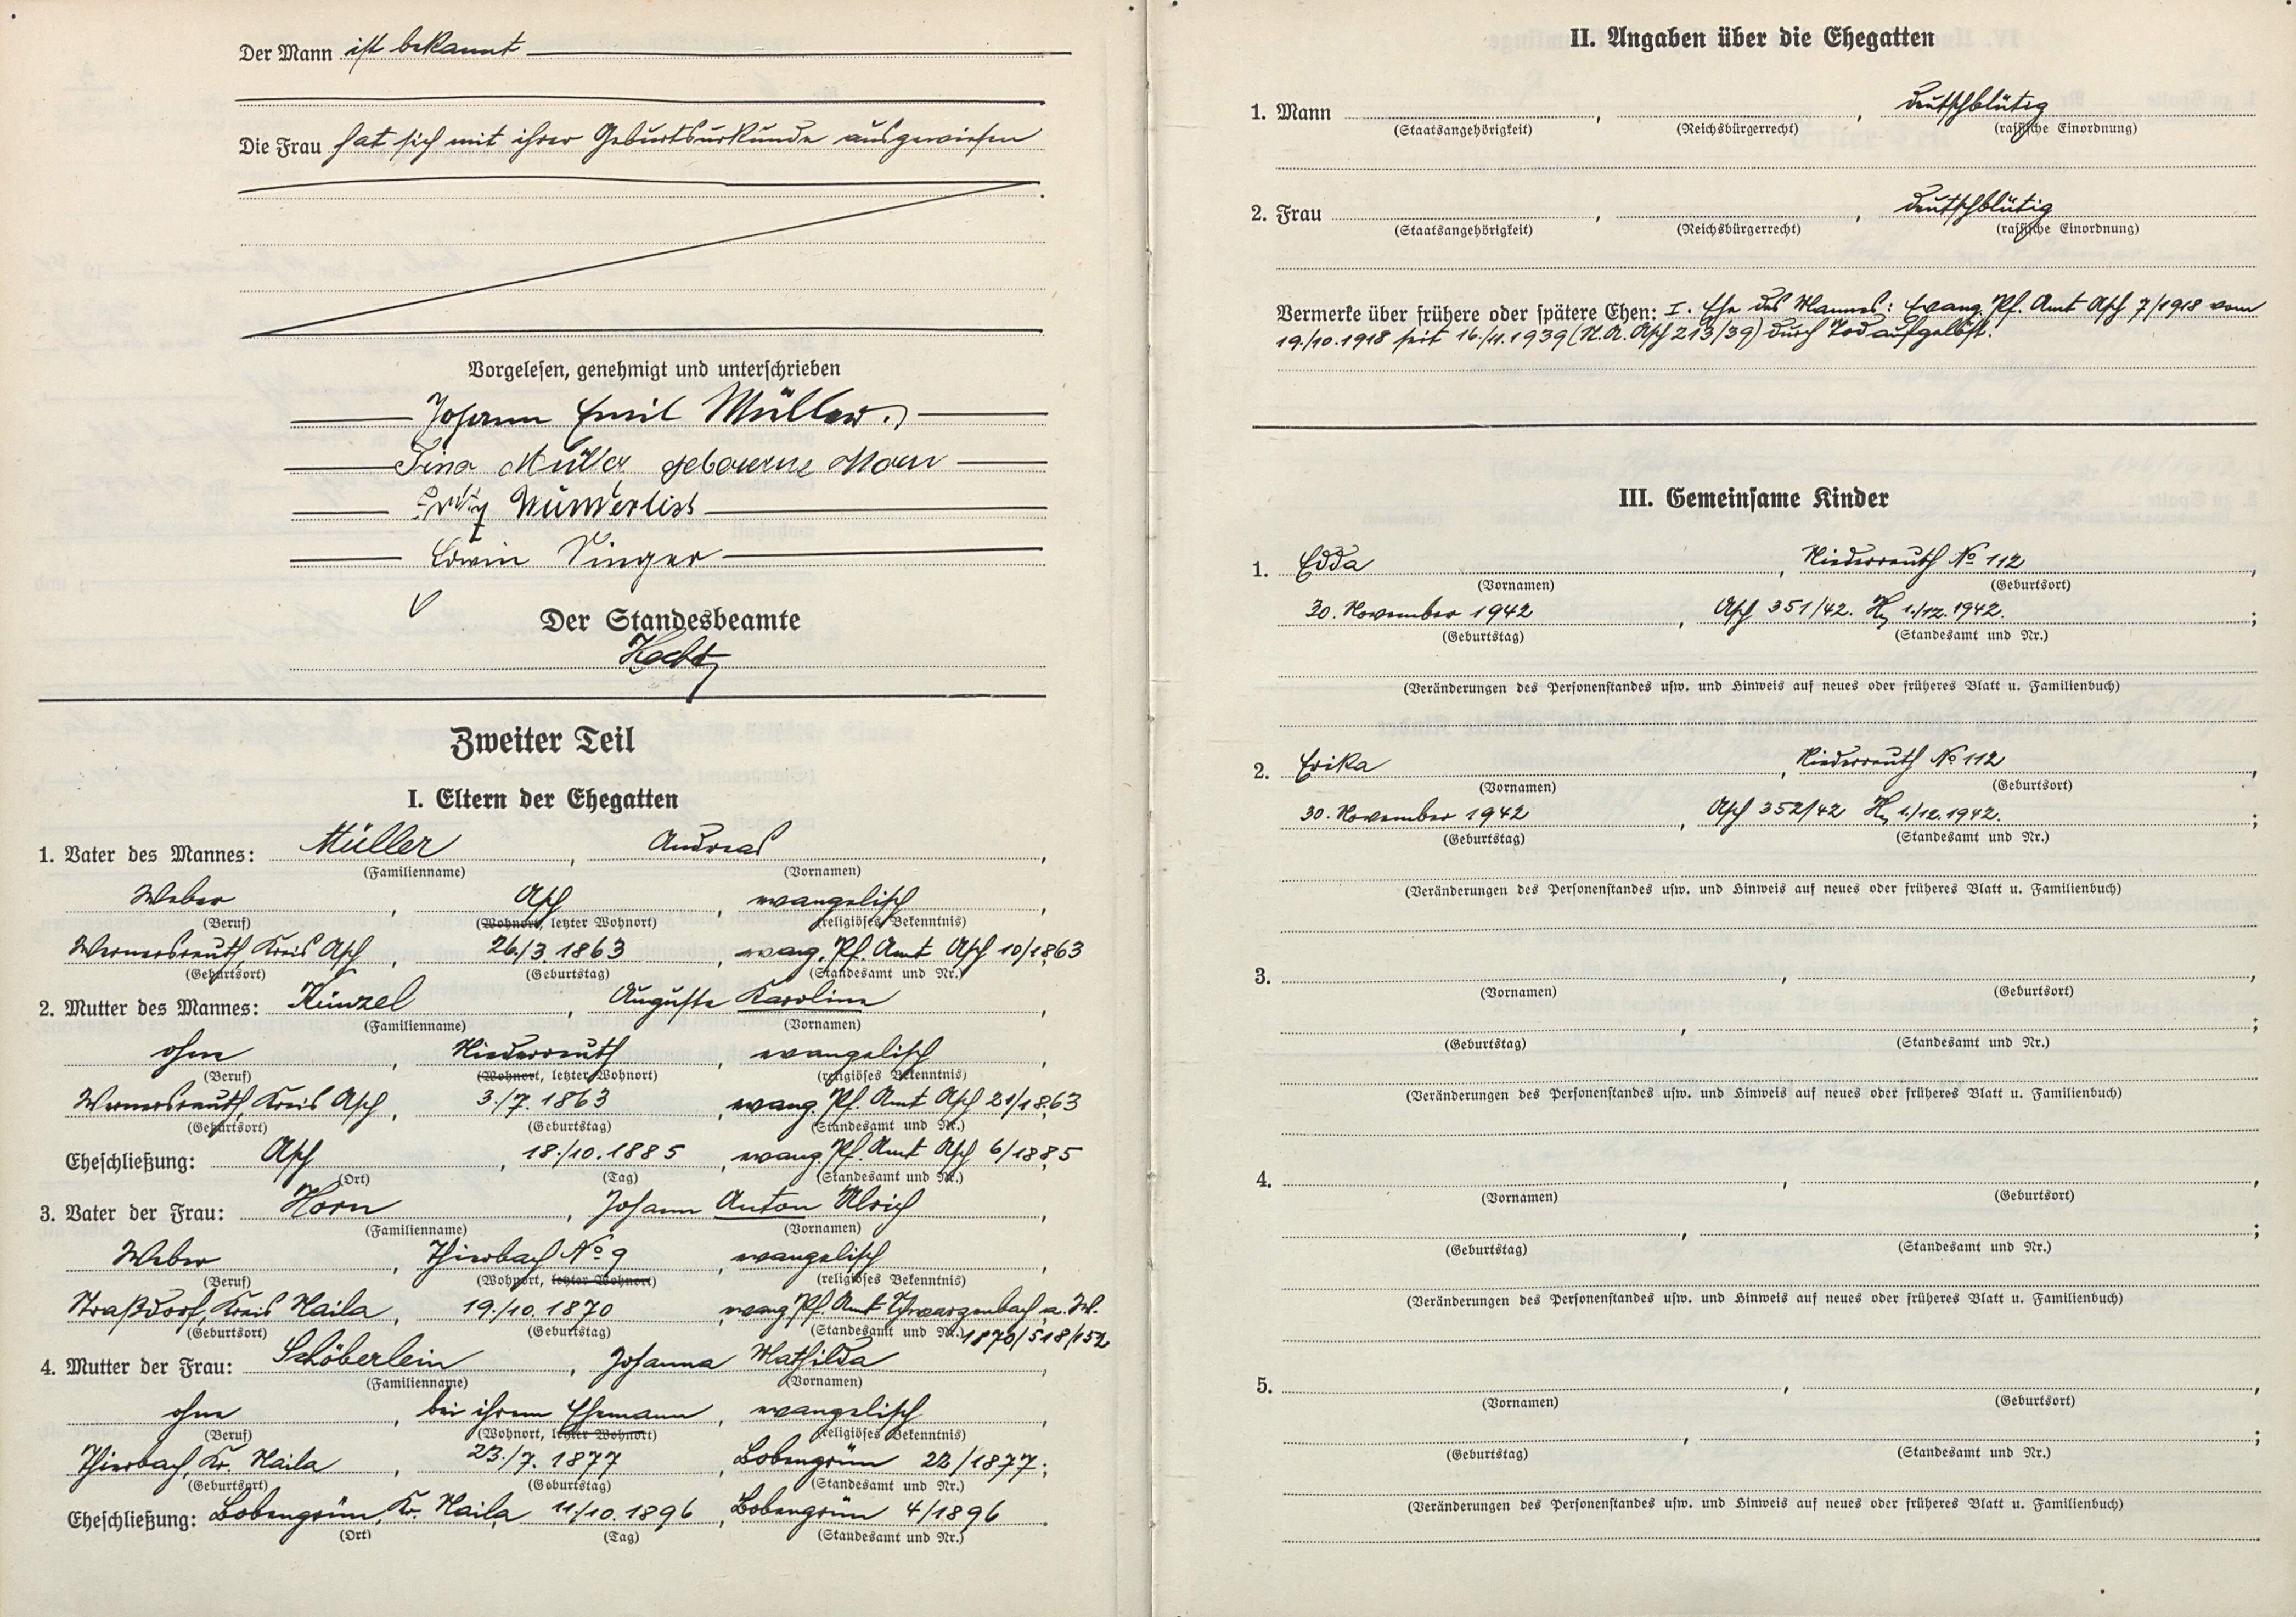 Der Mann ist bekannt
Die Frau hat sich mit ihrer Geburtsurkunde ausgewiesen
.
Vorgelesen, genehmigt und unterschrieben
Johann Emil Müller.
Müller geborene Horn
Fritz
Edwin Singer
Der Standesbeamte
Zweiter Teil
I. Eltern der Ehegatten
1. Vater des Mannes: Müller, Andreas,
(Familienname) (Vornamen)
Weber, Asch, evangelisch,
(Beruf) (Wohnort, letzter Wohnort) (religiöses Bekenntnis)
Wernersreuth, Kreis Asch, 26./3. 1863, evang. Pf. Amt Asch 10/1863
(Geburtsort) (Geburtstag) (Standesamt und Nr.)
2. Mutter des Mannes: Künzel, Auguste Karoline,
(Familienname) (Vornamen)
ohne, Niederreuth, evangelisch,
(Beruf) (Wohnort, letzter Wohnort) (religiöses Bekenntnis)
Wernersreuth, Kreis Asch, 3./7. 1863, evang. Pf. Amt Asch 21/1863
(Geburtsort) (Geburtstag) (Standesamt und Nr.)
Eheschließung: Asch, 18./10. 1885, evang. Pf. Amt Asch 6/1885
(Ort) (Tag) (Standesamt und Nr.)
3. Vater der Frau: Horn, Johann Anton Ulrich,
(Familienname) (Vornamen)
Weber, Thierbach No 9, evangelisch,
(Beruf) (Wohnort, letzter Wohnort) (religiöses Bekenntnis)
Straßdorf, Kreis Naila, 19./10. 1870, evang. Pf. Amt Schwarzenbach a. W.
(Geburtsort) (Geburtstag) (Standesamt und Nr.) 1870/518/152
4. Mutter der Frau: Schöberlein, Johanna Mathilda,
(Familienname) (Vornamen)
ohne, bei ihrem Ehemann, evangelisch,
(Beruf) (Wohnort, letzter Wohnort) (religiöses Bekenntnis)
Thierbach, Kr. Naila, 23./7. 1877, Bobengrün 22/1877;
(Geburtsort) (Geburtstag) (Standesamt und Nr.)
Eheschließung: Bobengrün, Kr. Naila, 11./10. 1896, Bobengrün 4/1896.
(Ort) (Tag) (Standesamt und Nr.)
II. Angaben über die Ehegatten
1. Mann , , deutschblütig
(Staatsangehörigkeit) (Reichsbürgerrecht) (rassische Einordnung)
2. Frau , , deutschblütig
(Staatsangehörigkeit) (Reichsbürgerrecht) (rassische Einordnung)
Vermerke über frühere oder spätere Ehen: I. Ehe des Mannes: Evang. Pf. Amt Asch 7/1918 vom
19./10. 1918 seit 16./11. 1939 (St. A. Asch 213/39) durch Tod aufgelöst.
III. Gemeinsame Kinder
1. Edda, Niederreuth No 112,
(Vornamen) (Geburtsort)
30. November 1942, Asch 351/42. 1./12. 1942.;
(Geburtstag) (Standesamt und Nr.)
(Veränderungen des Personenstandes usw. und Hinweis auf neues oder früheres Blatt u. Familienbuch)
2. Erika, Niederreuth No 112,
(Vornamen) (Geburtsort)
30. November 1942, Asch 352/42 1./12. 1942.;
(Geburtstag) (Standesamt und Nr.)
(Veränderungen des Personenstandes usw. und Hinweis auf neues oder früheres Blatt u. Familienbuch)
3. , ,
(Vornamen) (Geburtsort)
, ;
(Geburtstag) (Standesamt und Nr.)
(Veränderungen des Personenstandes usw. und Hinweis auf neues oder früheres Blatt u. Familienbuch)
4. , ,
(Vornamen) (Geburtsort)
, ;
(Geburtstag) (Standesamt und Nr.)
(Veränderungen des Personenstandes usw. und Hinweis auf neues oder früheres Blatt u. Familienbuch)
5. , ,
(Vornamen) (Geburtsort)
, ;
(Geburtstag) (Standesamt und Nr.)
(Veränderungen des Personenstandes usw. und Hinweis auf neues oder früheres Blatt u. Familienbuch)